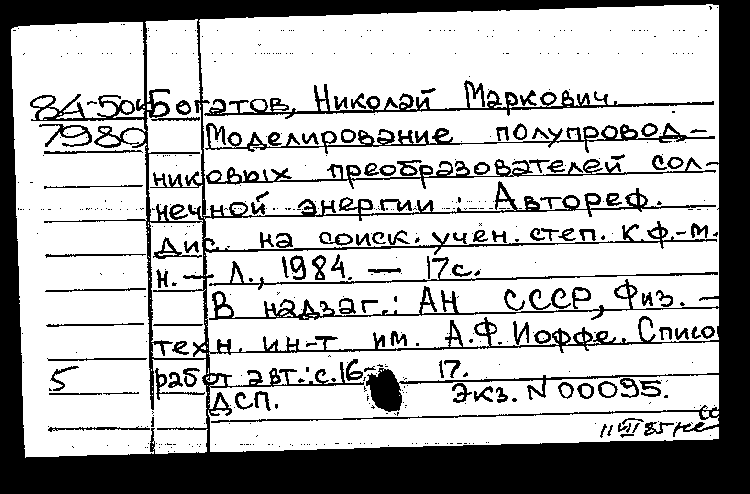 84-50к Богатов, Николай Маркович.
7980 Моделирование полупровод-
никовых преобразователей сол-
нечной энергии : Автореф.
дис. на соиск. учен. степ. к.ф.-м.
н. — Л., 1984. — 17с.
В надзаг.: АН СССР, Физ. -
техн. ин-т им. А.Ф. Иоффе. Список
5 работ авт.: с.16-17.
ДСП. Экз. N 00095.